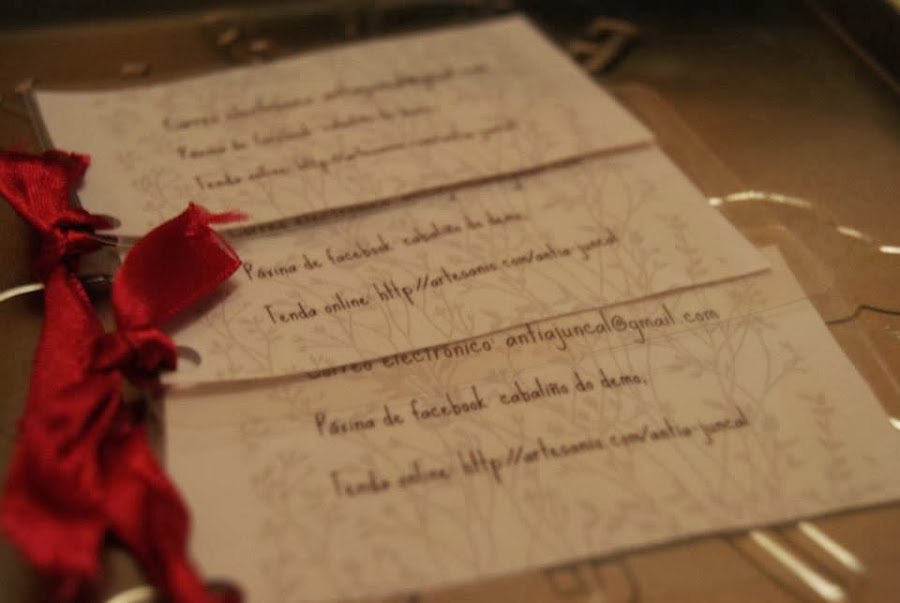 Correo electrónico: antiajuncal@gmail.com
Páxina de facebook: cabaliño do demo.
Tenda online: http://artesanio.com/antia-juncal
Correo electrónico
Páxina de facebook: cabaliño do demo.
Tenda online: http://artesanio.com/antia-juncal
Correo electrónico: antiajuncal@gmail.com
Páxina de facebook: cabaliño do demo.
Tenda online: http://artesanio.com/antia-juncal